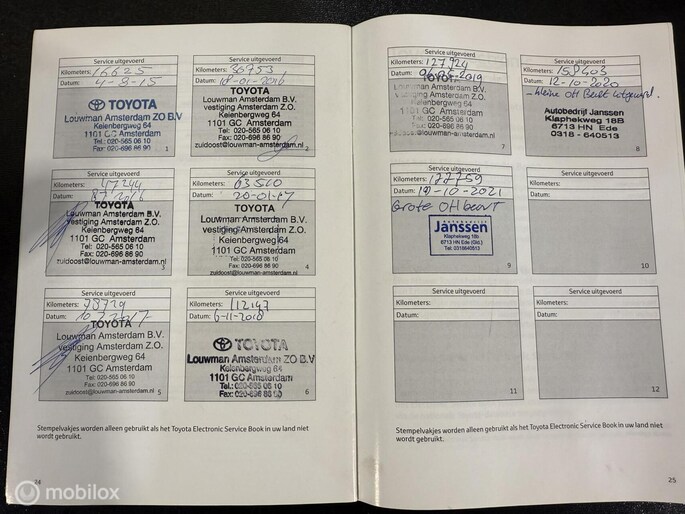 Service uitgevoerd
Kilometers: 16625
Datum: 4-8-15
TOYOTA
Louwman Amsterdam ZO B.V
Keienbergweg 64
1101 GC Amsterdam
Tel.: 020-565 06 10
Fax: 020-696 86 90
1
Service uitgevoerd
Kilometers: 30753
Datum: 18-01-2016
TOYOTA
Louwman Amsterdam B.V.
vestiging Amsterdam Z.O.
Keienbergweg 64
1101 GC Amsterdam
Tel: 020-565 06 10
Fax: 020-696 86 90
zuidoost@louwman-amsterdam.nl
2
Service uitgevoerd
Kilometers: 47244
Datum:
TOYOTA
Louwman Amsterdam B.V.
vestiging Amsterdam Z.O.
Keienbergweg 64
1101 GC Amsterdam
Tel: 020-565 06 10
Fax: 020-696 86 90
zuidoost@louwman-amsterdam.nl
3
Service uitgevoerd
Kilometers: 63510
Datum: 20-01-17
TOYOTA
Louwman Amsterdam B.V.
vestiging Amsterdam Z.O.
Keienbergweg 64
1101 GC Amsterdam
Tel: 020-565 06 10
Fax: 020-696 86 90
zuidoost@louwman-amsterdam.nl
4
Service uitgevoerd
Kilometers: 78729
Datum:
TOYOTA
Louwman Amsterdam B.V.
vestiging Amsterdam Z.O.
Keienbergweg 64
1101 GC Amsterdam
Tel: 020-565 06 10
Fax: 020-696 86 90
zuidoost@louwman-amsterdam.nl
5
Service uitgevoerd
Kilometers: 112147
Datum: 6-11-2018
TOYOTA
Louwman Amsterdam ZO B.V
Keienbergweg 64
1101 GC Amsterdam
Tel.: 020-565 06 10
Fax: 020-696 86 90
6
Stempelvakjes worden alleen gebruikt als het Toyota Electronic Service Book in uw land niet
wordt gebruikt.
24
Service uitgevoerd
Kilometers: 127924
Datum:
TOYOTA
Louwman Amsterdam B.V.
vestiging Amsterdam Z.O.
Keienbergweg 64
1101 GC Amsterdam
Tel: 020-565 06 10
Fax: 020-696 86 90
zuidoost@louwman-amsterdam.nl
7
Service uitgevoerd
Kilometers: 158403
Datum: 12-10-2020
- kleine OH Beurt
Autobedrijf Janssen
Klaphekweg 18B
6713 HN Ede
0318 - 640513
8
Service uitgevoerd
Kilometers: 177759
Datum: 19-10-2021
Grote OH beurt
autobedrijf
Janssen
Klaphekweg 18b
6713 HN Ede (Gld.)
Tel: 0318640513
9
Service uitgevoerd
Kilometers:
Datum:
10
Service uitgevoerd
Kilometers:
Datum:
11
Service uitgevoerd
Kilometers:
Datum:
12
Stempelvakjes worden alleen gebruikt als het Toyota Electronic Service Book in uw land niet
wordt gebruikt.
25
mobilox